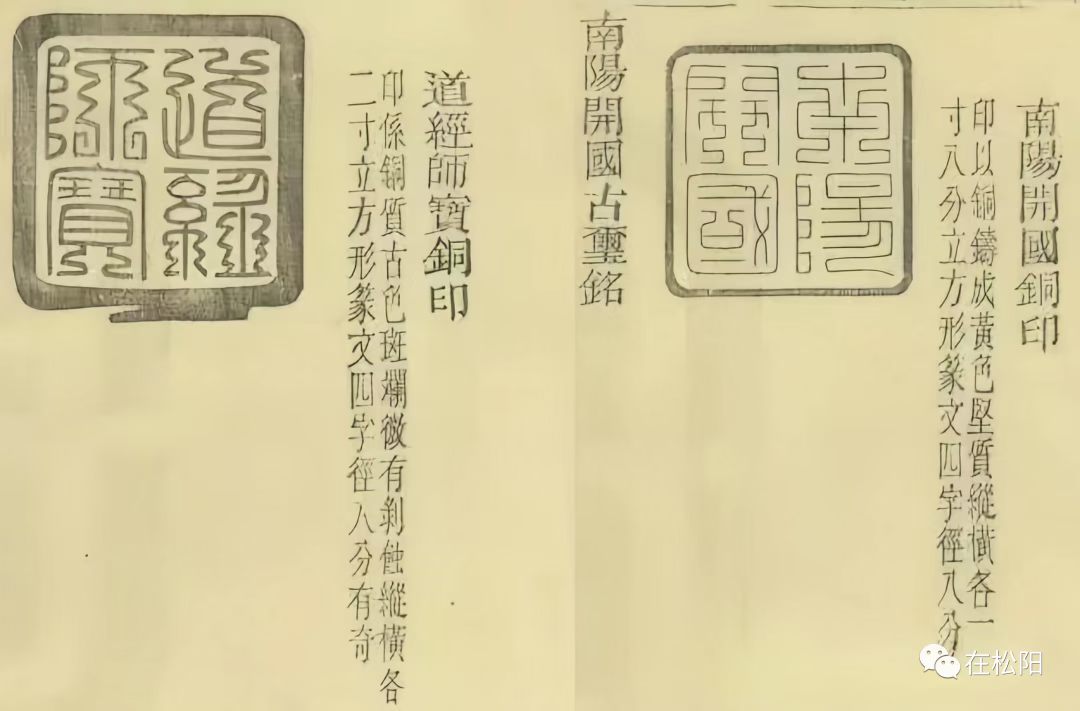 南陽開國銅印
印以銅鑄成黃色堅質縱橫各一
寸八分立方形篆文四字徑八分
南陽
開國
南陽開國古璽銘
道經師寶銅印
印係銅質古色斑斕微有剝蝕縱橫各
二寸立方形篆文四字徑八分有奇
道經
師寶
在松阳